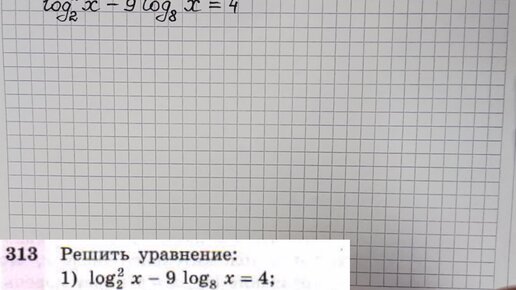 log₂² x − 9 log₈ x = 4
313 Решить уравнение:
1) log₂² x − 9 log₈ x = 4;